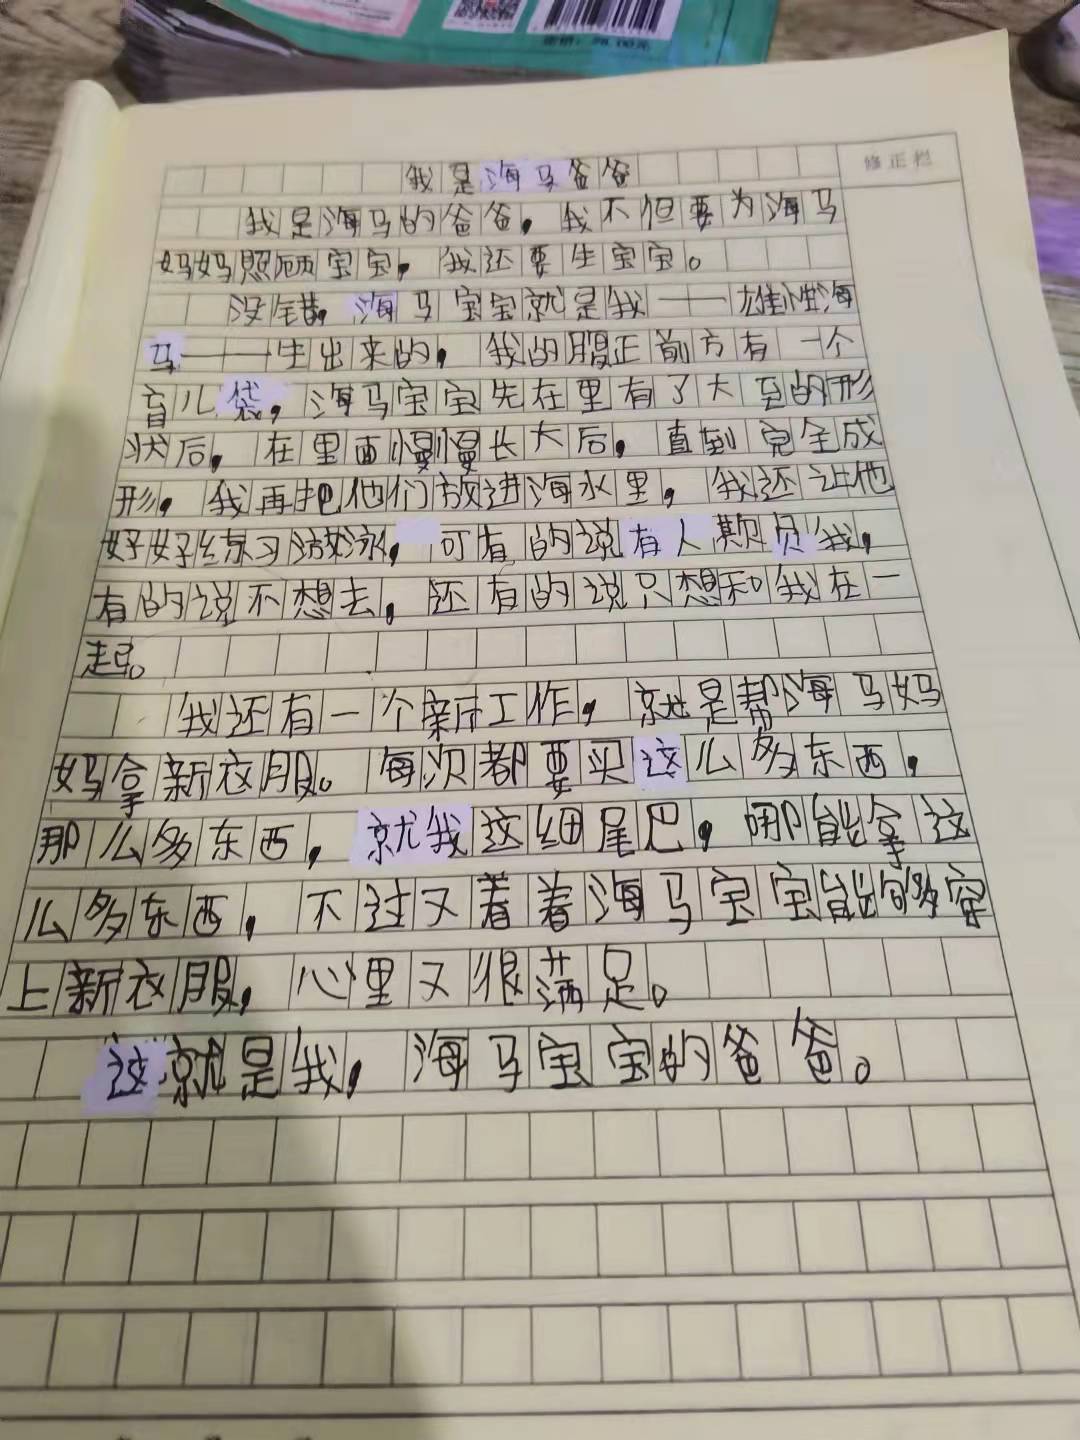 定价：28.00元
修正栏
我是海马爸爸
我是海马的爸爸，我不但要为海马
妈妈照顾宝宝，我还要生宝宝。
没错，海马宝宝就是我——雄性海
马——生出来的，我的腹正前方有一个
育儿袋，海马宝宝先在里有了大至的形
状后，在里面慢慢长大后，直到完全成
形，我再把他们放进海水里，我还让他
好好练习游泳，可有的说有人欺负我，
有的说不想去，还有的说只想和我在一
起。
我还有一个新工作，就是帮海马妈
妈拿新衣服。每次都要买这么多东西，
那么多东西，就我这细尾巴，哪能拿这
么多东西，不过又着着海马宝宝能够穿
上新衣服，心里又很满足。
这就是我，海马宝宝的爸爸。